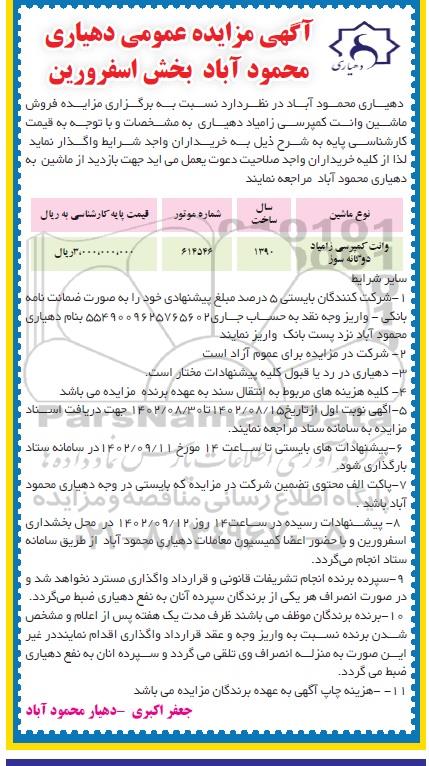 آگهی مزایده عمومی دهیاری
محمود آباد بخش اسفرورین
دهیاری
دهیاری محمود آباد در نظردارد نسبت به برگزاری مزایده فروش
ماشین وانت کمپرسی زامیاد دهیاری به مشخصات و با توجه به قیمت
کارشناسی پایه به شرح ذیل به خریداران واجد شرایط واگذار نماید
لذا از کلیه خریداران واجد صلاحیت دعوت یعمل می اید جهت بازدید از ماشین به
دهیاری محمود آباد مراجعه نمایند
نوع ماشین | سال ساخت | شماره موتور | قیمت پایه کارشناسی به ریال
وانت کمپرسی زامیاد دوگانه سوز | ۱۳۹۰ | ۶۱۴۵۴۶ | ۳،۰۰۰،۰۰۰،۰۰۰ریال
سایر شرایط
۱-شرکت کنندگان بایستی ۵ درصد مبلغ پیشنهادی خود را به صورت ضمانت نامه
بانکی - واریز وجه نقد به حساب جاری۵۵۴۹۰۰۹۶۲۵۷۶۵۶۰۲ بنام دهیاری
محمود آباد نزد پست بانک واریز نمایند
۲- شرکت در مزایده برای عموم آزاد است
۳- دهیاری در رد یا قبول کلیه پیشنهادات مختار است.
۴-کلیه هزینه های مربوط به انتقال سند به عهده برنده مزایده می باشد
۵-آگهی نوبت اول ازتاریخ۱۴۰۲/۰۸/۱۵تا۱۴۰۲/۰۸/۳۰ جهت دریافت اسناد
مزایده به سامانه ستاد مراجعه نمایند.
۶-پیشنهادات های بایستی تا ساعت ۱۴ مورخ ۱۴۰۲/۰۹/۱۱در سامانه ستاد
بارگذاری شود.
۷-پاکت الف محتوی تضمین شرکت در مزایده که بایستی در وجه دهیاری محمود
آباد باشد .
۸- پیشنهادات رسیده در ساعت۱۴ روز ۱۴۰۲/۰۹/۱۲ در محل بخشداری
اسفرورین و با حضور اعضا کمیسیون معاملات دهیاری محمود آباد از طریق سامانه
ستاد انجام می‌گردد.
۹-سپرده برنده انجام تشریفات قانونی و قرارداد واگذاری مسترد نخواهد شد و
در صورت انصراف هر یکی از برندگان سپرده آنان به نفع دهیاری ضبط می‌گردد.
۱۰-برنده برندگان موظف می باشند ظرف مدت یک هفته پس از اعلام و مشخص
شدن برنده نسبت به واریز وجه و عقد قرارداد واگذاری اقدام نماینددر غیر
این صورت به منزله انصراف وی تلقی می گردد و سپرده انان به نفع دهیاری
ضبط می گردد.
۱۱- -هزینه چاپ آگهی به عهده برندگان مزایده می باشد
جعفر اکبری -دهیار محمود آباد